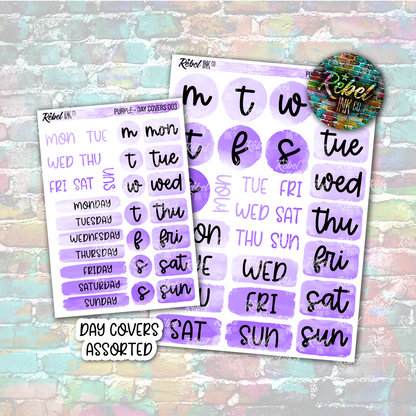 Rebel INK CO
PURPLE - DAY COVERS 003
MON TUE
m mon
WED THU
t tue
FRI SAT SUN
w wed
MONDAY
TUESDAY
t thu
WEDNESDAY
f fri
THURSDAY
FRIDAY
s sat
SATURDAY
s sun
SUNDAY
Rebel INK CO
m t w
t f s
MON
TUE FRI
wed
WED SAT
thu
THU SUN
WED
fri
FRI
sat
SAT SUN sun
Rebel
INK CO.
DAY COVERS
ASSORTED